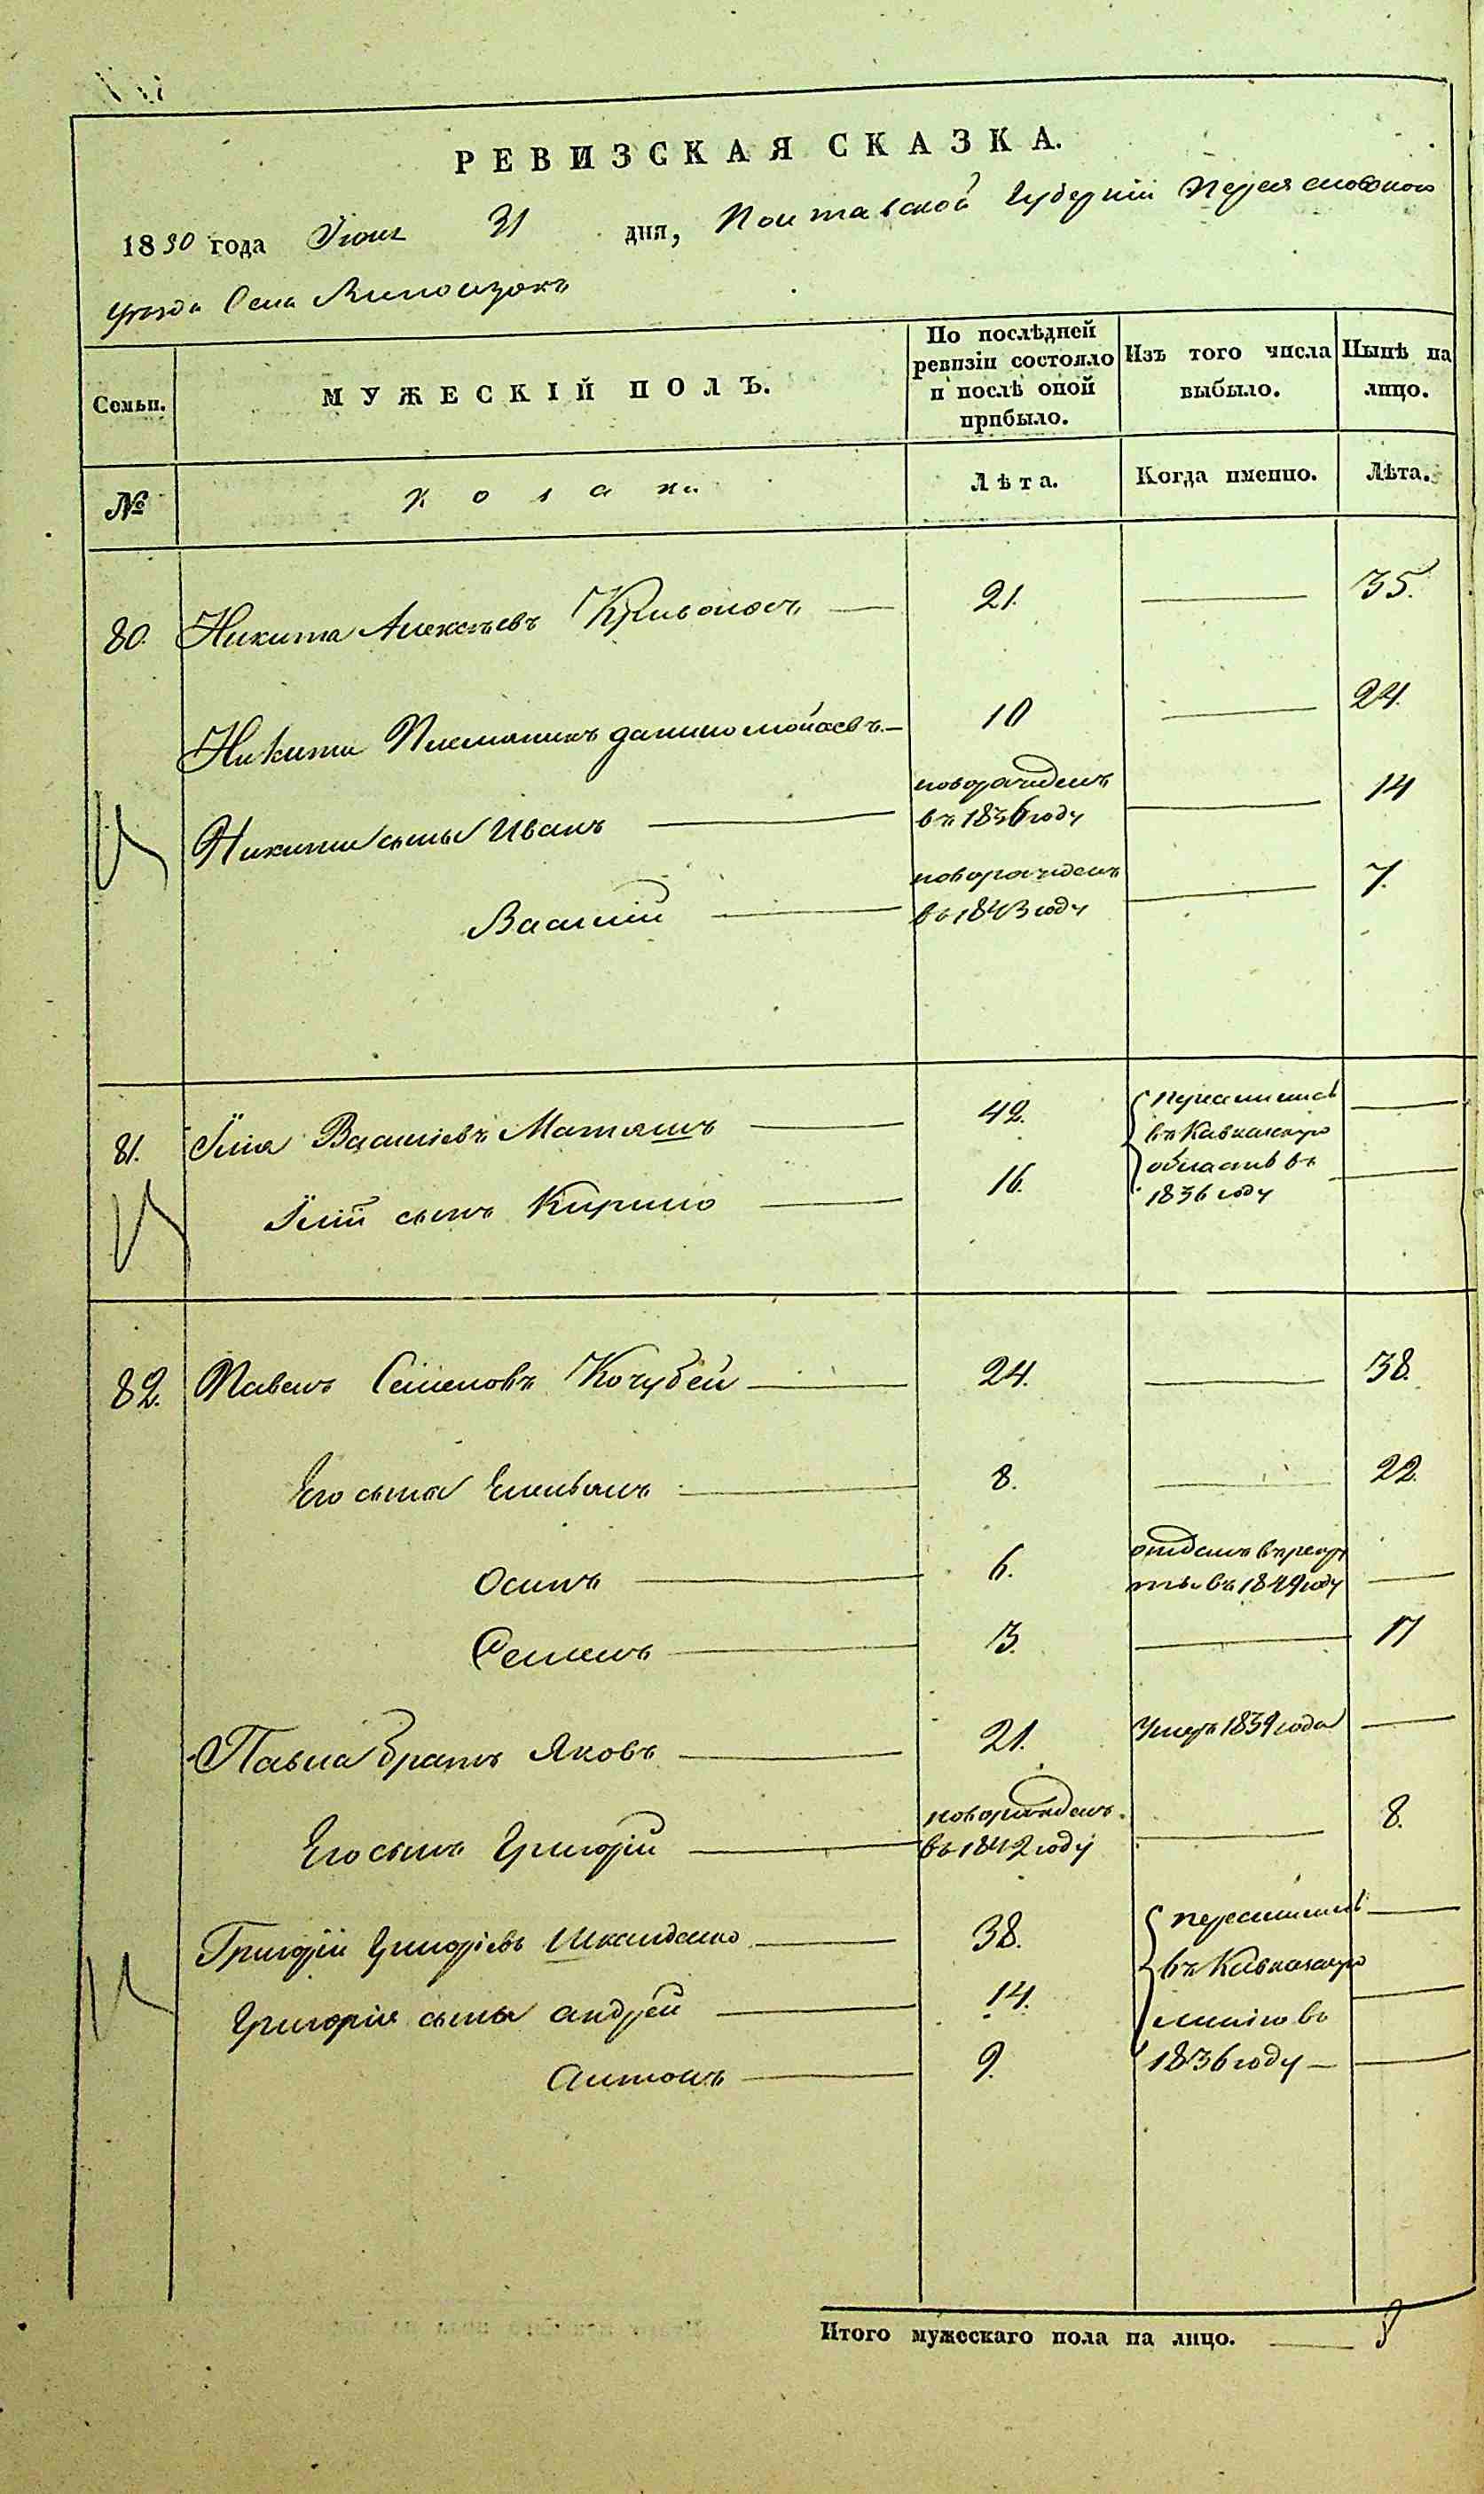 РЕВИЗСКАЯ СКАЗКА.
1850 года Іюля 31 дня, Полтавской Губерніи Переяславского
уезда Села Билоизокъ
Семьи.
МУЖЕСКІЙ ПОЛЪ.
По послѣдней ревизіи состояло и послѣ оной прибыло.
Изъ того числа выбыло.
Нынѣ на лицо.
№
козаки
Лѣта.
Когда именно.
Лѣта.
80. Никита Алексѣевъ Кривоносъ 21. 35.
Никиты Племянникъ данило 10 24.
Никиты сыны Иванъ новорожденъ въ 1836 году 14
Василій новорожденъ въ 1843 году 7.
81. Илія Василіевъ Маташъ 42. перечислилсь
Иліи сынъ Кирило 16. въ Кавказскую область въ 1836 году
82. Павелъ Семеновъ Кочубей 24. 38.
Его сыны Емельянъ 8. 22.
Осипъ 6. отданъ въ рекруты въ 1849 году
Семенъ 3. 17
Павла братъ Яковъ 21. Умеръ 1839 года
Его сынъ Григорій новорожденъ въ 1842 году 8.
Григорій Григоріевъ Шкандыко 38. перечислилсь
Григорія сыны андрей 14. въ Кавказскую линію въ
антонъ 9. 1836 году
Итого мужескаго пола на лицо. 8